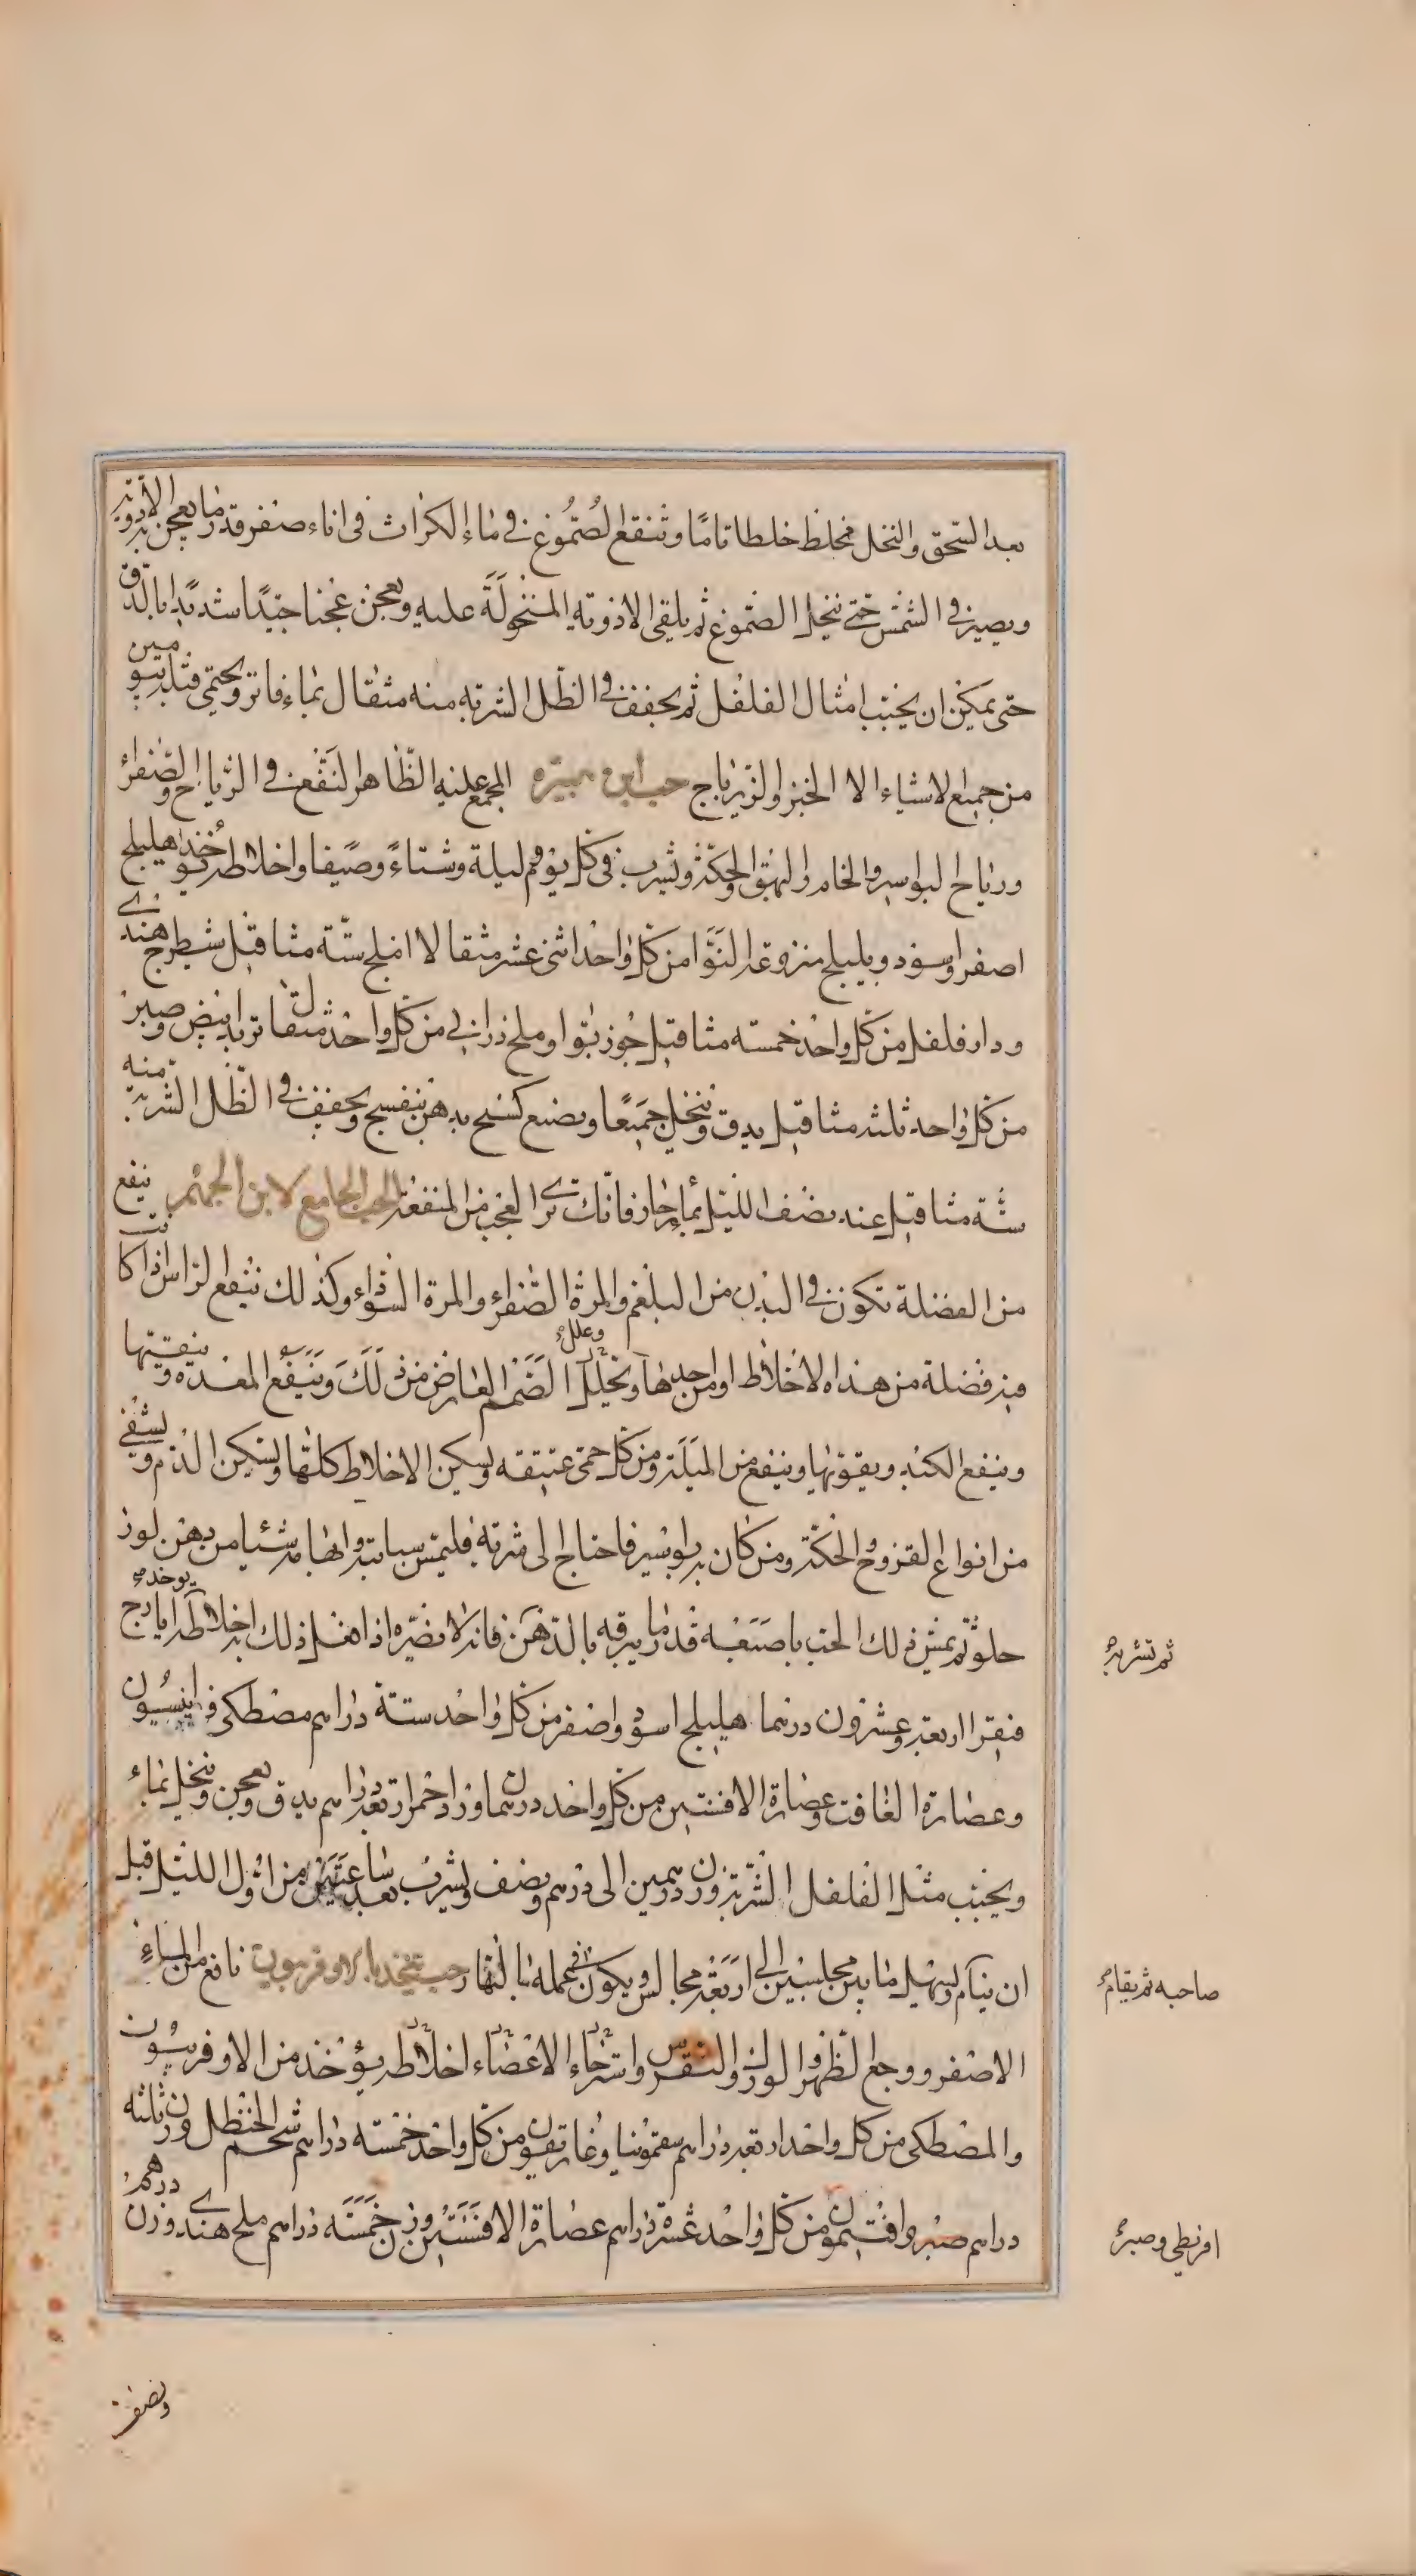 بعد السحق والنخل فخلط خلطا تاما وتنقع الصموغ في ماء الكراث في اناء صفر قدر ما يعجن به الادوية
ويصير في الشمس حتى ينحل الصموغ ثم يلقى الادوية المنخولة عليه ويعجن عجنا جيدا شديدا بالدق
حتى يمكن ان يحبب امثال الفلفل ثم يجفف في الظل الشربة منه مثقال بماء فاتر ويحتمى قبله بيومين
من جميع الاشياء الا الخبز والزيرباج حب ابن هبيرة المجمع عليه الظاهر النفع في الرياح والصفراء
ورياح البواسير والخام والبهق والحكة وتشرب في كل يوم وليلة وشتاء وصيفا واخلاطه يؤخذ هليلج
اصفر واسود وبليلج منزوعة النوا من كل واحد اثنى عشر مثقالا املج ستة مثاقيل شيطرج هندي
ودارفلفل من كل واحد خمسة مثاقيل جوزبوا وملح دراني من كل واحد مثقال تربد ابيض وصبر
من كل واحد ثلثة مثاقيل يدق وينخل جميعا ويصنع كسنح بدهن بنفسج ويجفف في الظل الشربة منه
ستة مثاقيل عند نصف الليل بماء حار فانك ترى العجب من المنفعة الحب الجامع لابن الجهم ينفع
من الفضلة تكون في البدن من البلغم والمرة الصفراء والمرة السوداء وكذلك ينفع الراس اذا كانت
فيه فضلة من هذه الاخلاط او من احدها ويحلل الصمم العارض من ذلك وينفع المعدة وينقيها
وعلل
وينفع الكبد ويقويها وينفع من المليلة ومن كل حمى عتيقة ويسكن الاخلاط كلها ويسكن الدم ويشفي
من انواع القروح والحكة ومن كان به بواسير فاحتاج الى شربة فليمس سبابته وابهامه شيئا من دهن لوز
حلو ثم يمس ذلك الحب باصبعه قدر ما يبرقه بالدهن فانه لا يضره اذا فعل ذلك به اخلاطه يوخذ ايارج
ثم تشربه
فيقرا اربعة وعشرون درهما هليلج اسود واصفر من كل واحد ستة دراهم مصطكى وانيسون
وعصارة الغافت وعصارة الافسنتين من كل واحد درهمان ورد احمر اربعة دراهم يدق ويعجن وينخل بماء
ويحبب مثل الفلفل الشربة وزن درهمين الى درهم ونصف ويشرب بعد ساعتين من اول الليل قبل
ان ينام ويسهل ما بين مجلسين الى اربعة مجالس ويكون في عمله بالنهار حب يتخذ بالاوفربيون نافع من الماء
صاحبه ثم يقام
الاصفر ووجع الظهر والورك والنقرس واسترخاء الاعضاء اخلاطه يؤخذ من الاوفربيون
والمصطكى من كل واحد اربعة دراهم سقمونيا وغاريقون من كل واحد خمسة دراهم شحم الحنظل وزن ثلثة
دراهم صبر وافتيمون من كل واحد عشرة دراهم عصارة الافسنتين وزن خمسة دراهم ملح هندي وزن درهم
اقريطي وصبر
ونصف